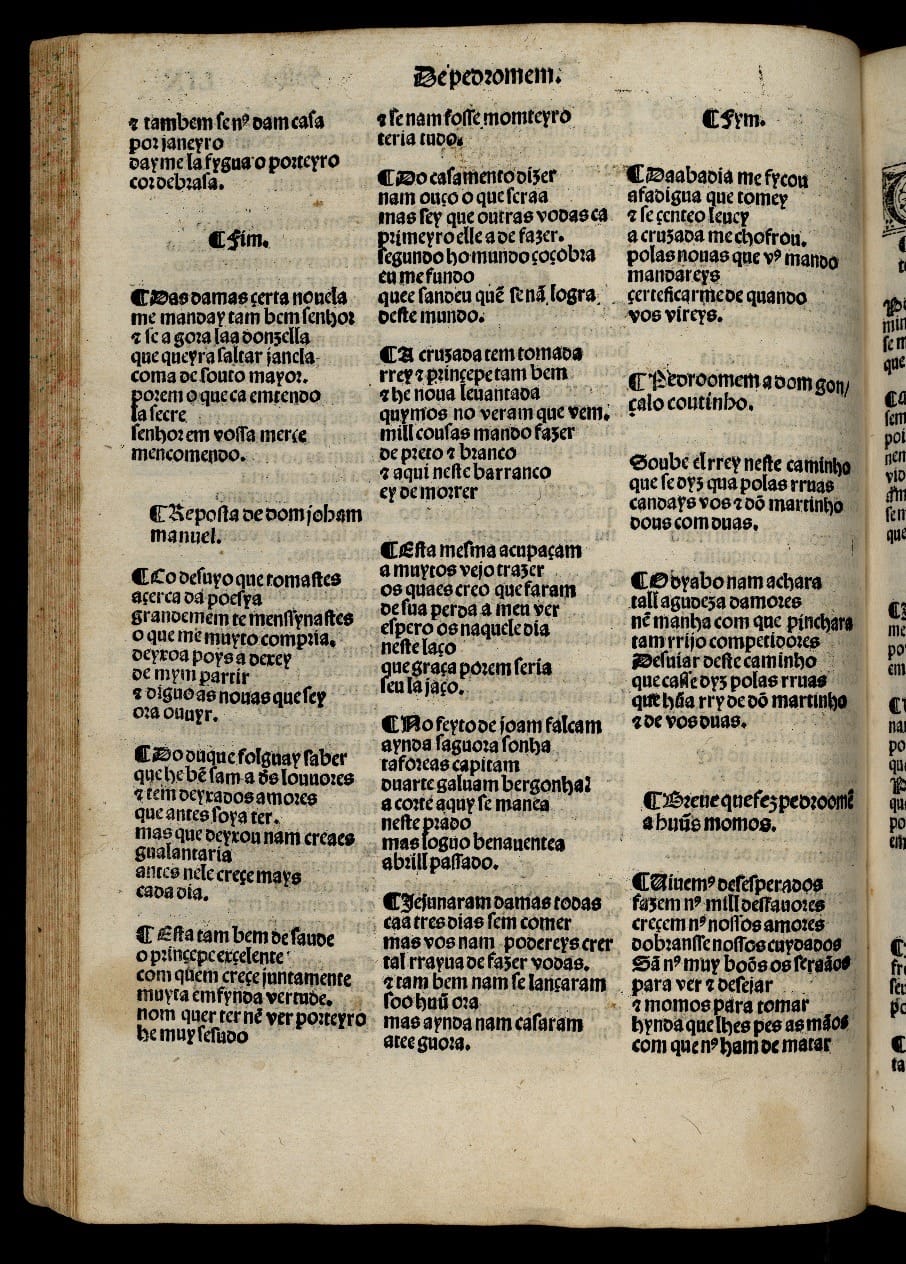 De pedromem.
⁊ tambem se nꝰ dam casa
por janeyro
day me la fygua o porteyro
cor de brasa.
¶ Fim.
¶ Das damas çerta nouela
me manday tam bem senhor
⁊ se a gora laa donzella
que queyra saltar janela
coma de souto mayor.
porem o que ca emtendo
la secre
senhor em vossa merçe
mencomendo.
¶ Reposta de dom joham
manuel.
¶ Co desuyo que tomastes
açerca da poesya
grandemem te menssynastes
o que me muyto compria.
deyxoa poys a dexey
de mym partir
⁊ diguo as nouas que sey
ora ouuyr.
¶ Do duque folguay saber
que he bẽ sam a d̃s louuores
⁊ tem deyxados amores
que antes soya ter.
mas que deyxou nam creaes
gualantaria
antes nele creçe mays
cada dia.
¶ Esta tam bem de saude
o prinçepe exçelente
com quem creçe juntamente
muyta emfynda vertude.
nom quer ter nẽ ver porteyro
he muy sesudo
⁊ se nam fosse momteyro
teria tudo.
¶ Do casamento dizer
nam ouço o que seraa
mas sey que outras vodas ca
primeyro elle a de fazer.
segundo ho mundo çoçobra
eu me fundo
quee sandeu quẽ se nã logra
deste mundo.
¶ A cruzada tem tomada
rrey ⁊ prinçepe tam bem
⁊ he noua leuantada
quymos no veram que vem.
mill cousas mando fazer
de preto ⁊ branco
⁊ aqui neste barranco
ey de morrer
¶ Esta mesma acupaçam
a muytos vejo trazer
os quaes creo que faram
de sua perda a meu ver
espero os naquele dia
neste laço
que graça porem seria
seu la jaço.
¶ No feyto de joam falcam
aynda saguora sonha
taforeas capitam
duarte galuam bergonha?
a corte aquy se manea
neste prado
mas loguo benauentea
abrill passado.
¶ Jejunaram damas todas
caa tres dias sem comer
mas vos nam podereys crer
tal rrayua de fazer vodas.
⁊ tam bem nam se lançaram
soo huũ ora
mas aynda nam casaram
atee guora.
¶ Fym.
¶ Da abadia me fycou
afadigua que tomey
⁊ se çenteo leuey
a cruzada me chofrou.
polas nouas que vꝰ mando
mandareys
çerteficarme de quando
vos vireys.
¶ Pedroomem a dom gon/
çalo coutinho.
Soube el rrey neste caminho
que se dyz qua polas rruas
candays vos ⁊ dõ martinho
dous com duas.
¶ O dyabo nam achara
tall agudeza damores
nẽ manha com que pinchara
tam rrijo competidores
Desuiar deste caminho
que casse dyz polas rruas
que hũa rry de dõ martinho
⁊ de vos duas.
¶ Breue que fez pedroomẽ
a huũs momos.
¶ Viuemꝰ desesperados
fazem nꝰ mill desfauores
creçem nꝰ nossos amores
dobransse nossos cuydados
Sã nꝰ muy boõs os serãos
para ver ⁊ desejar
⁊ momos para tomar
hynda que lhes pes as mãos
com que nꝰ ham de matar